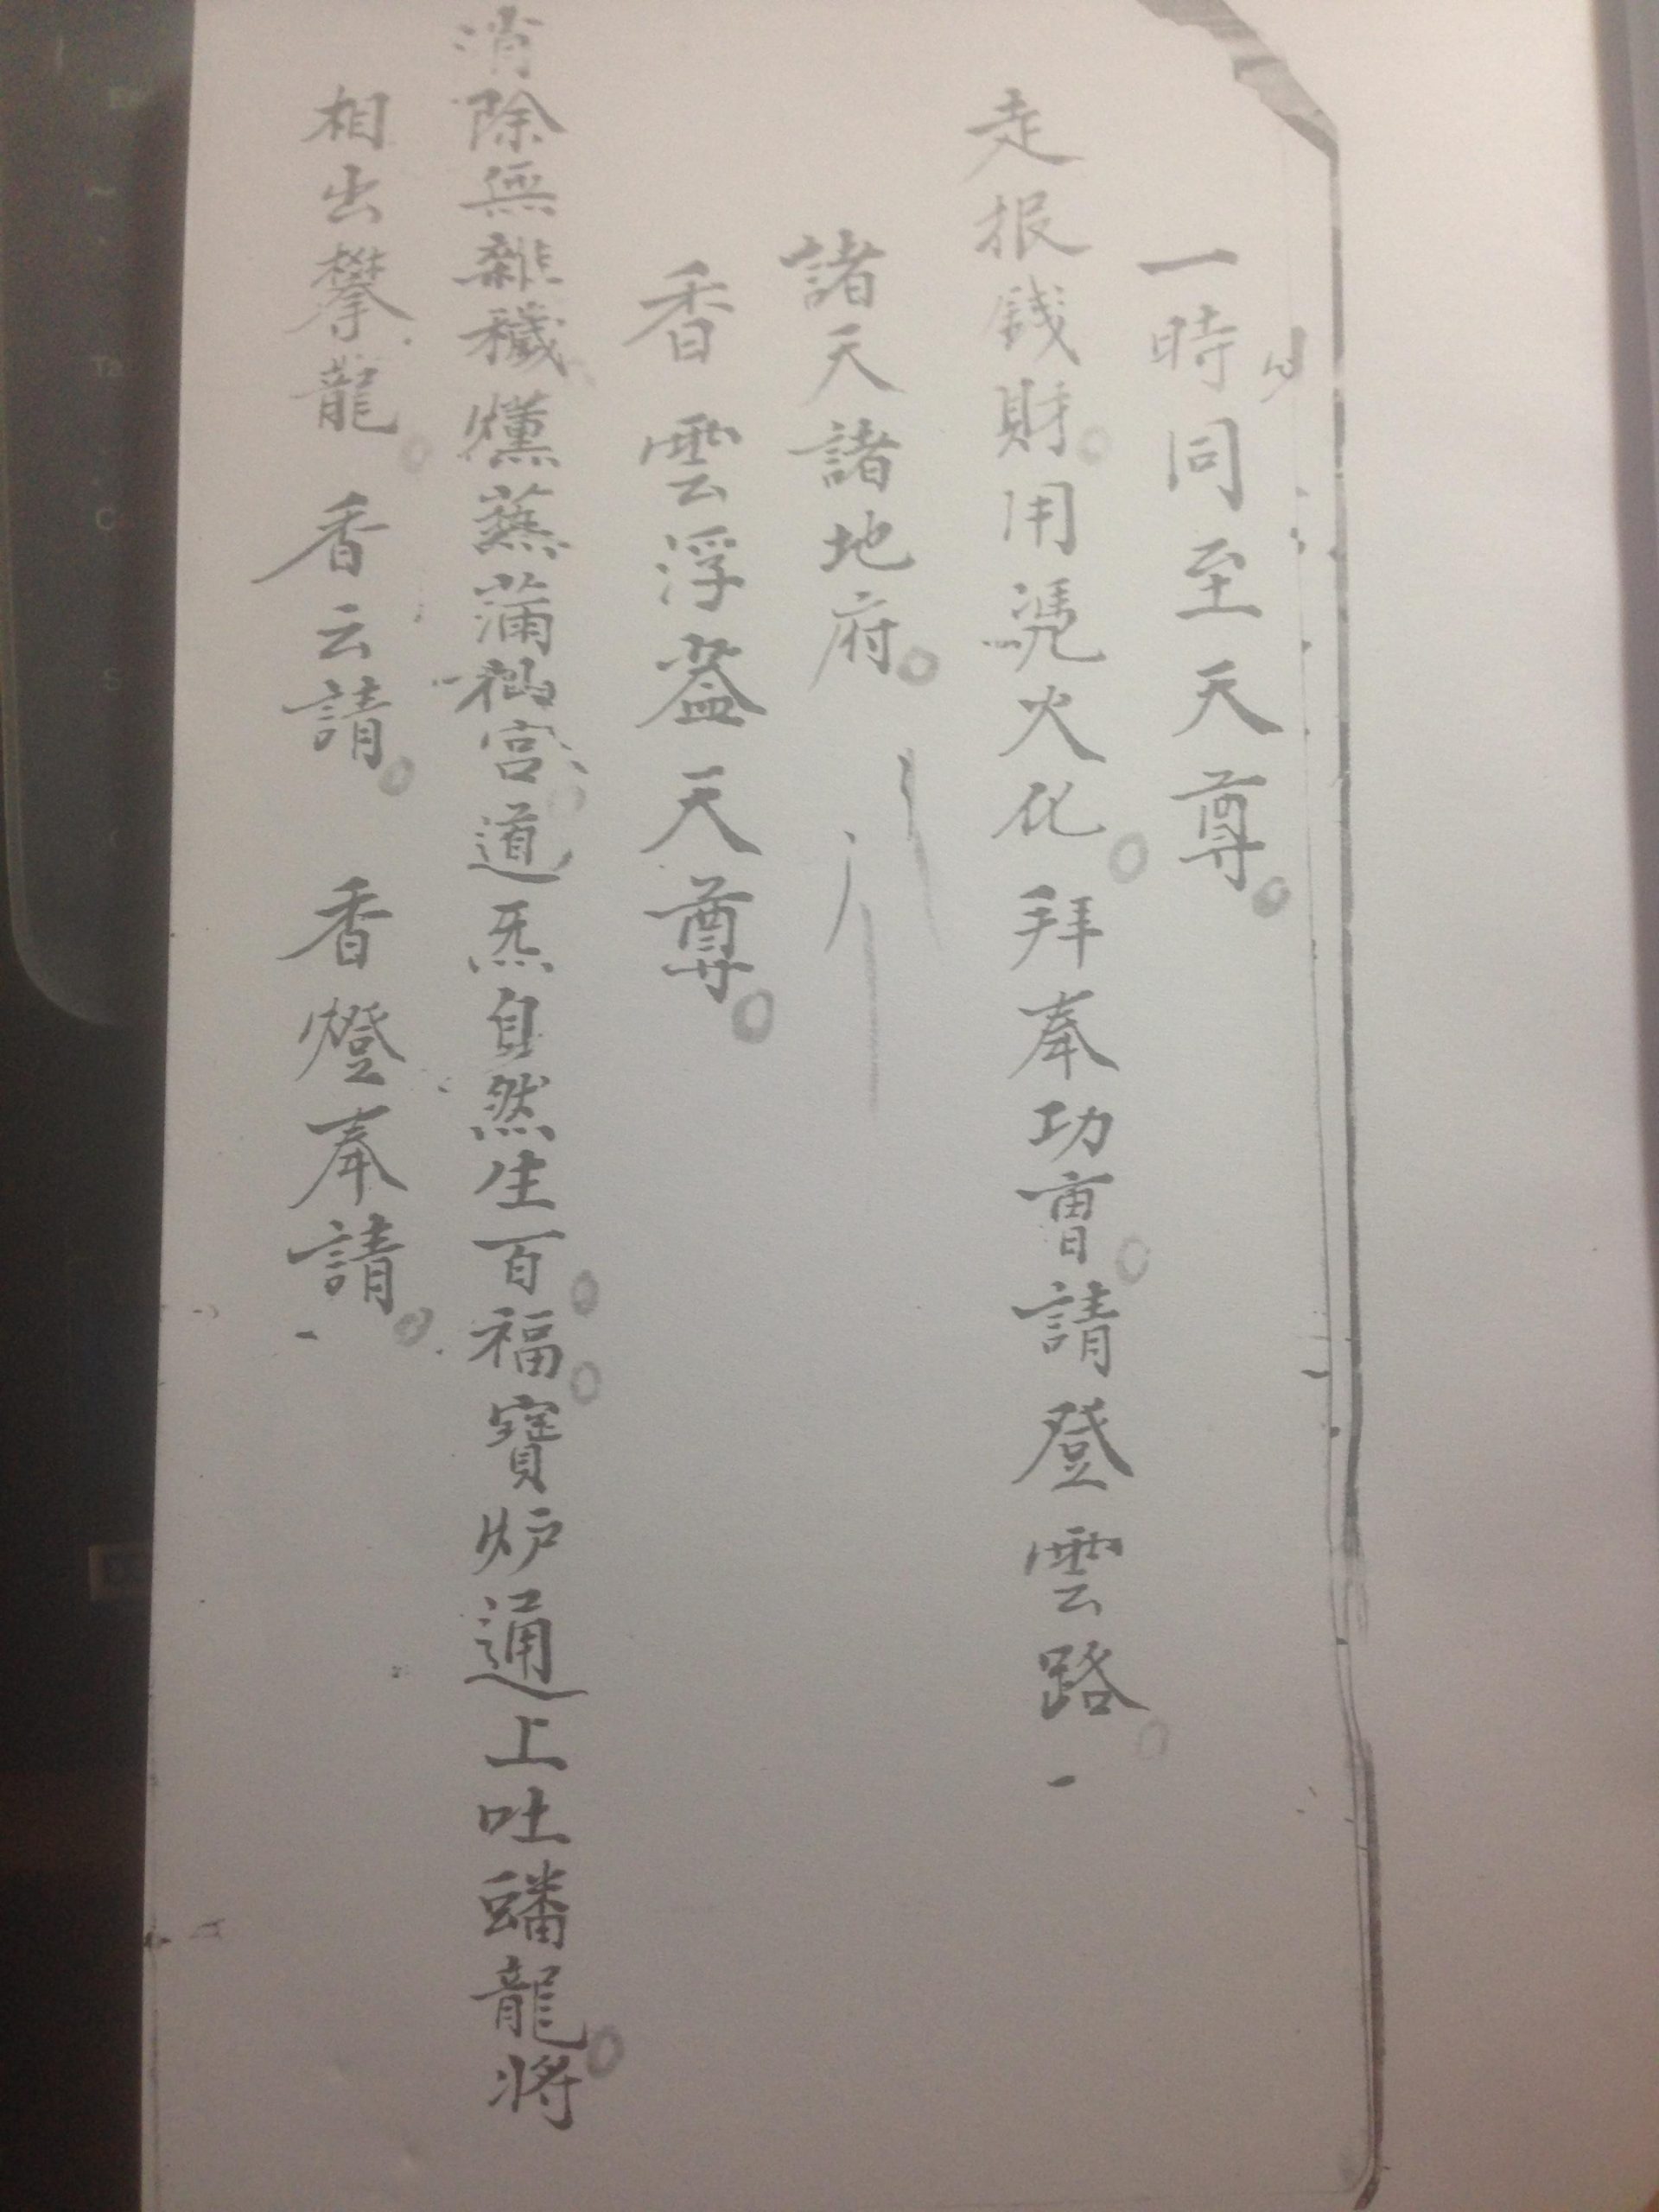 一時同至天尊。
走报錢財。用凴火化。拜奉功曺。請登雲路。
諸天諸地府。
香雲浮盖天尊。
消除無雜穢爐蒸滿秈宮。道炁自然生百。福。寳炉通上吐蟠龍。將
相出攀龍。香云請。香燈奉請。